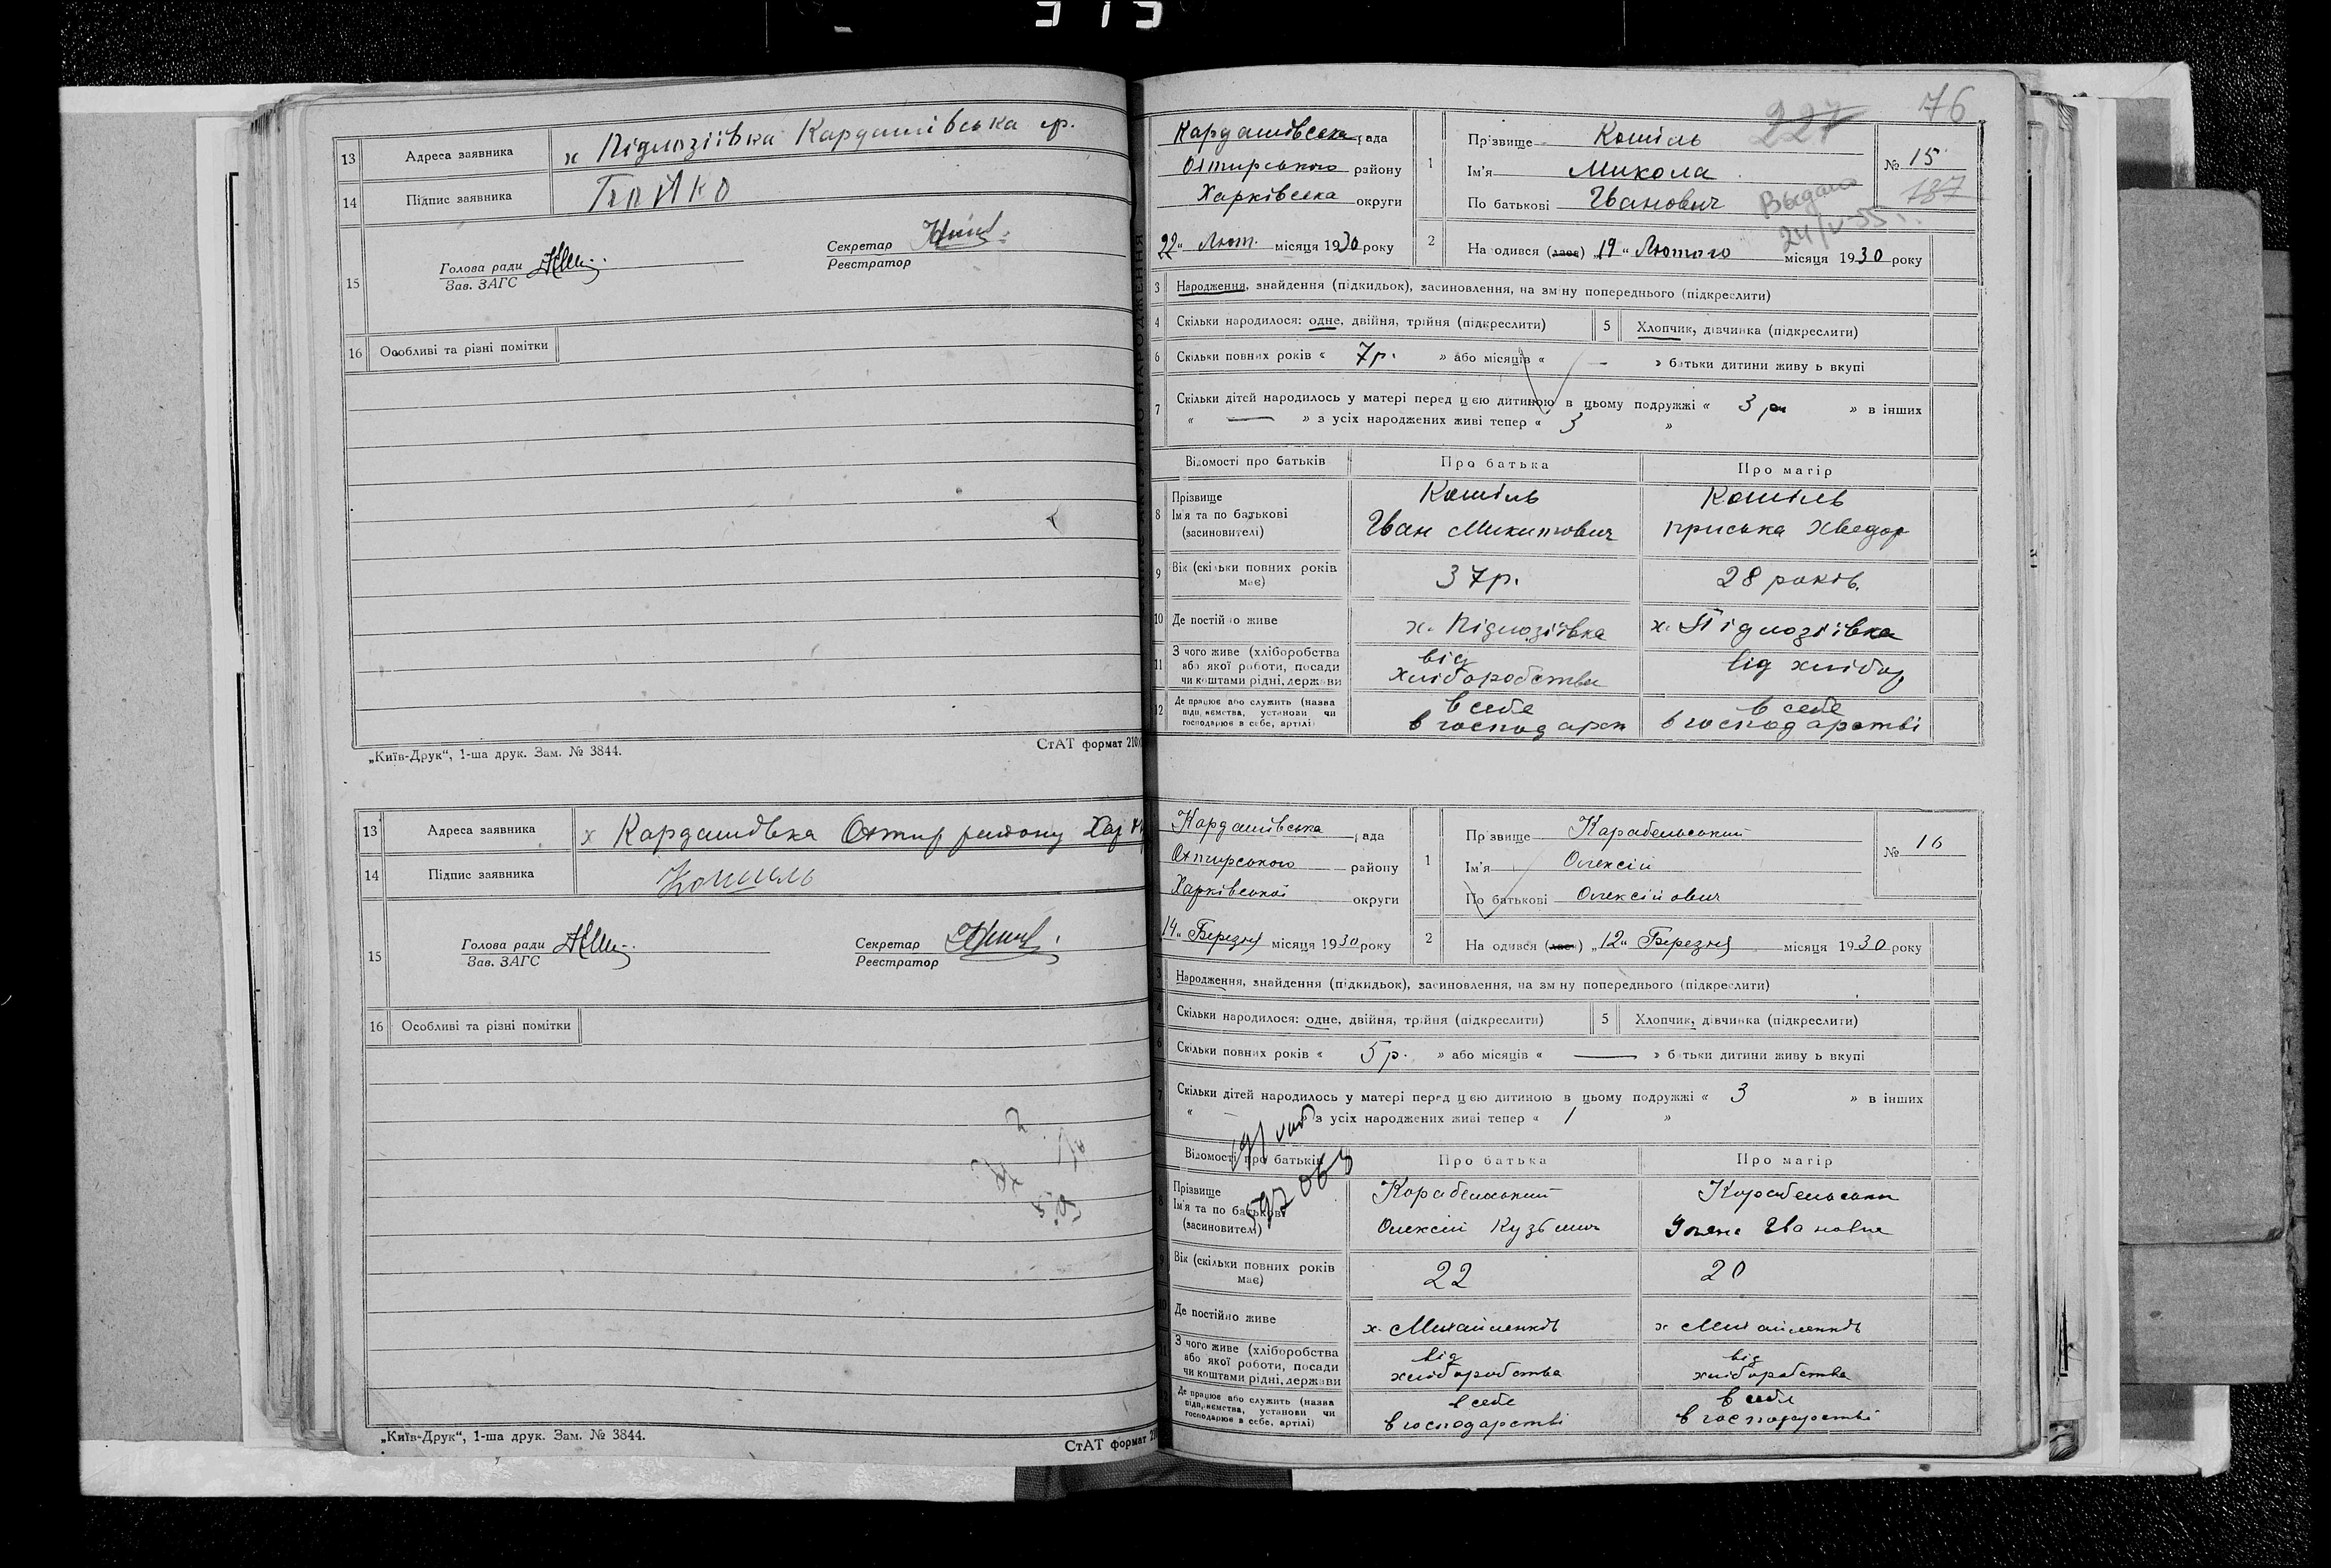 13 Адреса заявника х Підлозіївка Кардашівська ср.
14 Підпис заявника Бойко
15 Голова ради Секретар
Зав. ЗАГС Реєстратор
16 Особливі та різні помітки
„Київ-Друк“, 1-ша друк. Зам. № 3844. СтАТ формат 210
13 Адреса заявника х Кардашівка Охтир району Хар
14 Підпис заявника Кошиль
15 Голова ради Секретар
Зав. ЗАГС Реєстратор
16 Особливі та різні помітки
„Київ-Друк“, 1-ша друк. Зам. № 3844. СтАТ формат
76
227
Кардашівська рада
Охтирського району
Харківська округи
22 Лют. місяця 1930 року
1 Прізвище Кошіль
Ім'я Микола
По батькові Іванович
№ 15
187
Выдано
24/V-55 г.
2 Народився (лась) „19“ Лютого місяця 1930 року
3 Народження, знайдення (підкидьок), засиновлення, на зміну попереднього (підкреслити)
4 Скільки народилося: одне, двійня, трійня (підкреслити) 5 Хлопчик, дівчинка (підкреслити)
6 Скільки повних років « 7р. » або місяців « — » батьки дитини живуть вкупі
7 Скільки дітей народилось у матері перед цією дитиною в цьому подружжі « 3 » в інших
« — » з усіх народжених живі тепер « 3 »
Відомості про батьків Про батька Про матір
8 Прізвище Кошіль Кошіль
Ім'я та по батькові Іван Микитович Приська Хведор
(засиновителі)
9 Вік (скільки повних років має) 37р. 28 років.
10 Де постійно живе х. Підлозіївка х. Підлозіївка
11 З чого живе (хліборобства від від хлібор
або якої роботи, посади хліборобства
чи коштами рідні, держави
12 Де працює або служить (назва в себе в себе
підприємства, установи чи в господарст в господарстві
господарює в себе, артілі)
Кардашівська рада
Охтирського району
Харківської округи
14 Березня місяця 1930 року
1 Прізвище Карабельський
Ім'я Олексій
По батькові Олексійович
№ 16
2 Народився (лась) „12“ Березня місяця 1930 року
3 Народження, знайдення (підкидьок), засиновлення, на зміну попереднього (підкреслити)
4 Скільки народилося: одне, двійня, трійня (підкреслити) 5 Хлопчик, дівчинка (підкреслити)
6 Скільки повних років « 5р. » або місяців « — » батьки дитини живуть вкупі
7 Скільки дітей народилось у матері перед цією дитиною в цьому подружжі « 3 » в інших
« — » з усіх народжених живі тепер « 1 »
Відомості про батьків Про батька Про матір
8 Прізвище Корабельський Корабельська
Ім'я та по батькові Олексій Кузьмич Уляна Івановна
(засновителі)
9 Вік (скільки повних років має) 22 20
10 Де постійно живе х. Михайленків х Михайленків
11 З чого живе (хліборобства від від
або якої роботи, посади хліборобства хліборобства
чи коштами рідні, держави
12 Де працює або служить (назва в себе в себе
підприємства, установи чи в господарстві в господарстві
господарює в себе, артілі)